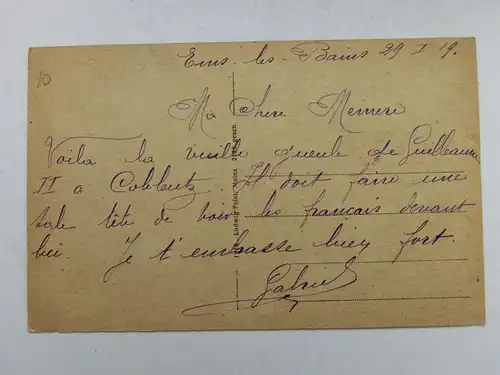 10
Ems-les-Bains 29 I 19.
Ma Chere Memere
Voila la vieille gueule de Guillaume
II a Coblentz Il doit faire une
sale tête de voir les français devant
lui. Je t'embrasse bien fort.
Gabriel
Ludwig Feist, Mainz gesch.